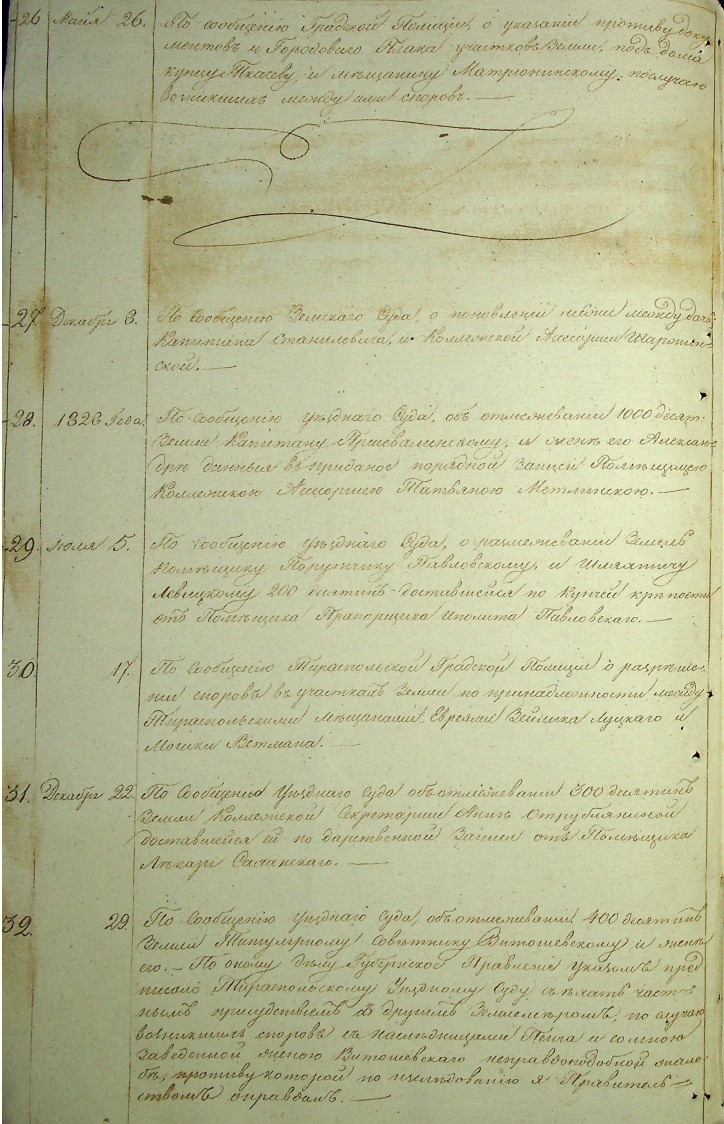 26 Майя 26. По сообщению Градской Полиции, о указании противу доку
ментов и Городового Плана участков Земли, под дома
купцу Ткачеву, и мещанину Матрионинскому, послучаю
возникших между ими споров. —
27. Декабря 3. По сообщению Земскаго Суда, о поновлении межи между дачь
Капитана Станилевича, и Коллежской Ассесорши
ской. —
28. 1826 года. По сообщению уѣзднаго Суда, об отмежевании 1000 десят:
Земли Капитану Пришвалинскому, и женѣ его Алексан-
дрѣ данныя в приданое порядной записи Помѣщицею
Коллежскою Ассесоршею Татьяною Метлинскою. —
29. Июля 5. По сообщению уѣзднаго Суда, о размежевании Земель
помѣщику Порутчику Павловскому, и Шляхтичу
Левицкому 200 десятинъ доставшейся по купчей крѣпости
отъ Помѣщика Прапорщика Иполита Павловскаго. —
30. 17. По Сообщению Тираспольской Градской Полиции о разрѣше-
нии споровъ въ участкахъ Земли по принадлежности между
Тираспольскими Мѣщанами Евреями Зейлика Луцкаго и
Мошки Ветмана. —
31. Декабря 22. По Сообщению Уѣзднаго Суда объ отмежевании 300 десятинъ
Земли Коллежской Секретарши Аннѣ Отрубляниной
доставшейся ей по дарственной Записи отъ Помѣщика
Лѣкаря Саханскаго. —
32. 29. По Сообщению уѣзднаго Суда, объ отмежевании 400 десятинъ
Земли Титулярному Совѣтнику Витошевскому и женѣ
его. — По оному дѣлу Губернской Правление указомъ пред
писало Тираспольскому Уѣздному Суду съѣхать част-
нымъ присудствиемъ съ другимъ Землемѣромъ, по случаю
возникшихъ споровъ съ наслѣдницами Пенча и со мною
заведенной женою Витошевскаго неправдоподобной жало
бѣ, противу которой по изслѣдованию я Правитель-
ствомъ оправданъ. —